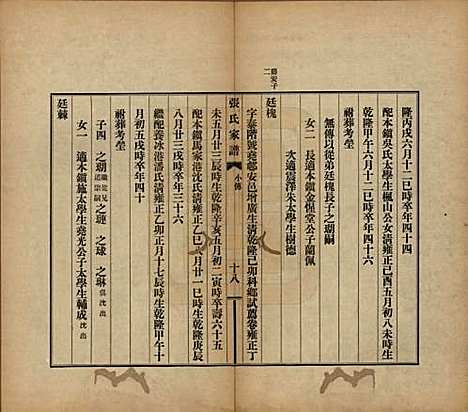 隆丙戌六月十二巳時卒年四十四
配本鎭吳氏太學生楓山公女清雍正己酉五月初八未時生
乾隆甲午六月十二巳時卒年四十六
祔葬考塋
無傳以從弟廷槐長子之瑚嗣
女二 長適本鎭金惺堂公子蘭佩
次適震澤朱太學生樹德
廷槐
二
字泰階號堯都安邑增廣生清乾隆己卯科鄉試薦卷雍正丁
張氏家譜
小傳
十八
未五月廿三辰時生乾隆辛亥五月初二寅時卒壽六十五
配本鎭馬家港沈氏清雍正乙巳
月廿一巳時生乾隆庚辰
八月廿三戌時卒年三十六
繼配養冰港潘氏清雍正乙卯正月十七辰時生乾隆甲午十
月初五戌時卒年四十
祔葬考塋
子四 之瑚 之璉 之球 之琳
女一 適本鎭施太學生堯光公子太學生輔成 沈出
廷棘